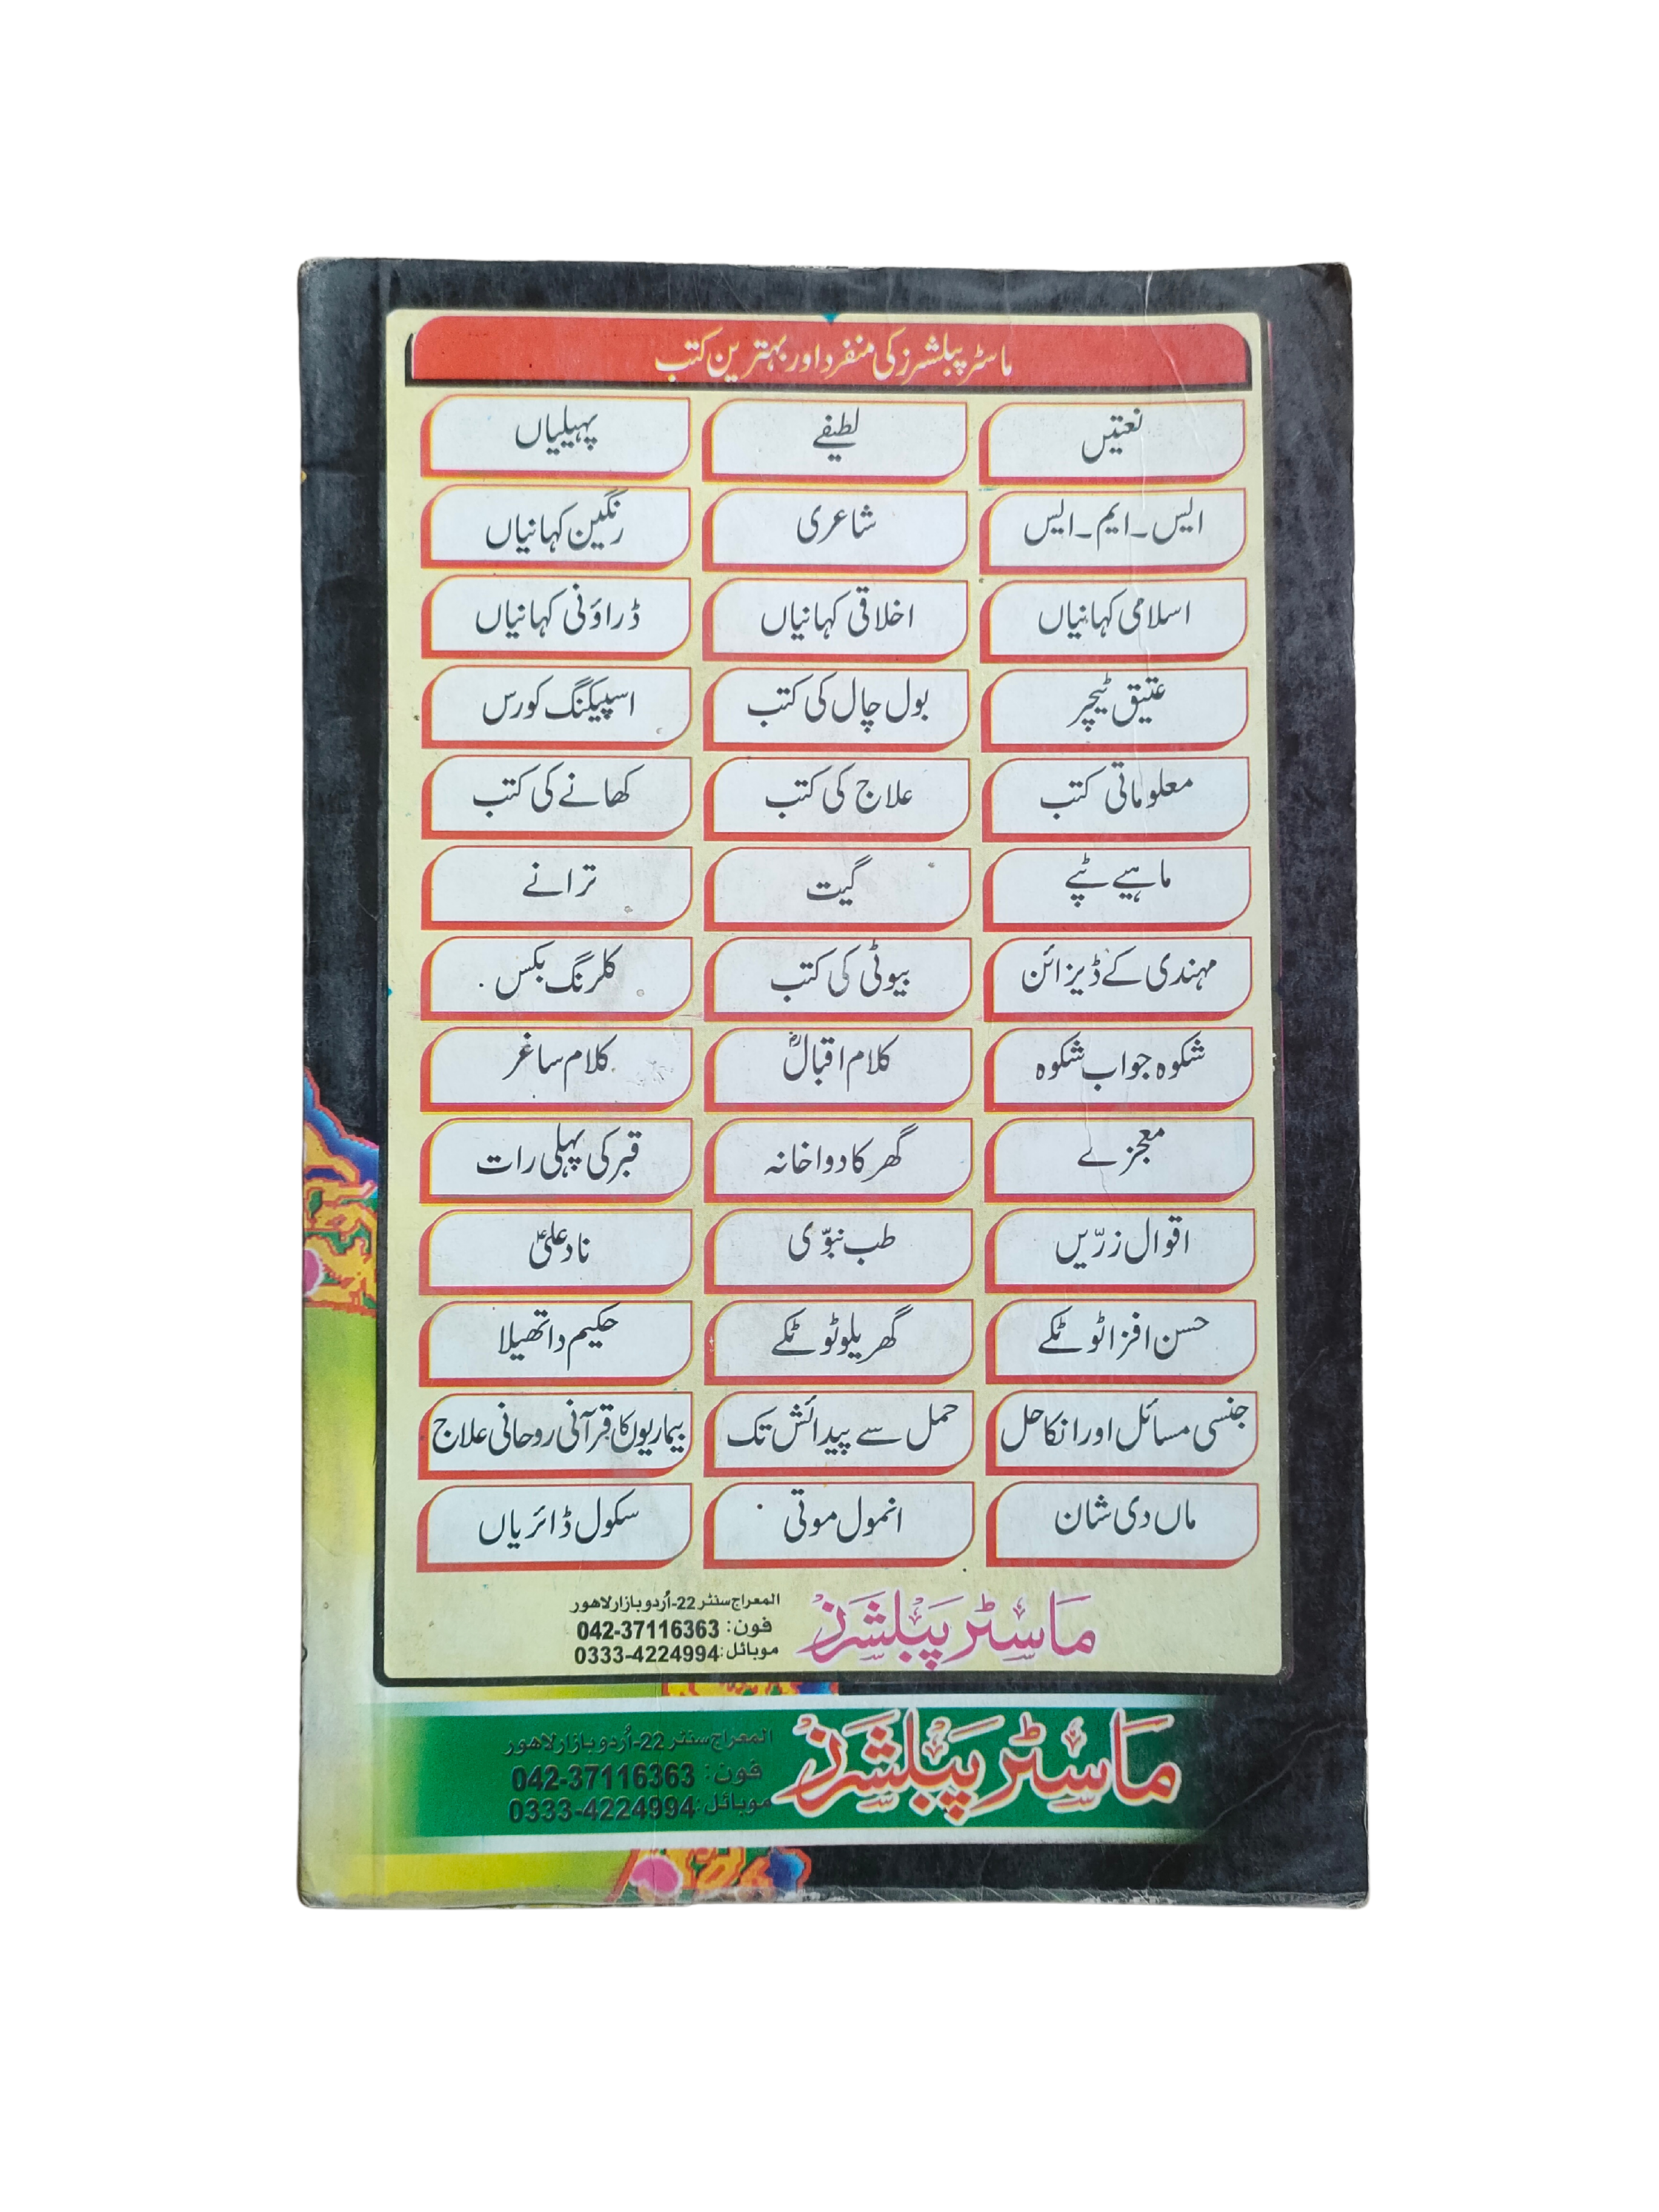 ماسٹر پبلشرز کی منفرد اور بہترین کتب
نعتیں لطیفے پہیلیاں
ایس۔ایم۔ایس شاعری رنگین کہانیاں
اسلامی کہانیاں اخلاقی کہانیاں ڈراؤنی کہانیاں
عتیق ٹیچر بول چال کی کتب اسپیکنگ کورس
معلوماتی کتب علاج کی کتب کھانے کی کتب
ماہیے ٹپے گیت ترانے
مہندی کے ڈیزائن بیوٹی کی کتب کلرنگ بکس
شکوہ جواب شکوہ کلام اقبالؒ کلام ساغر
معجزے گھر کا دواخانہ قبر کی پہلی رات
اقوال زرّیں طب نبویّ ناد علیؑ
حسن افزا ٹوٹکے گھریلو ٹوٹکے حکیم دا تھیلا
جنسی مسائل اور انکا حل حمل سے پیدائش تک بیماریوں کا قرآنی روحانی علاج
ماں دی شان انمول موتی سکول ڈائریاں
ماسٹر پبلشرز
المعراج سنٹر 22-اُردو بازار لاهور
فون: 042-37116363
موبائل: 0333-4224994
ماسٹر پبلشرز
المعراج سنٹر 22-اُردو بازار لاهور
فون: 042-37116363
موبائل: 0333-4224994